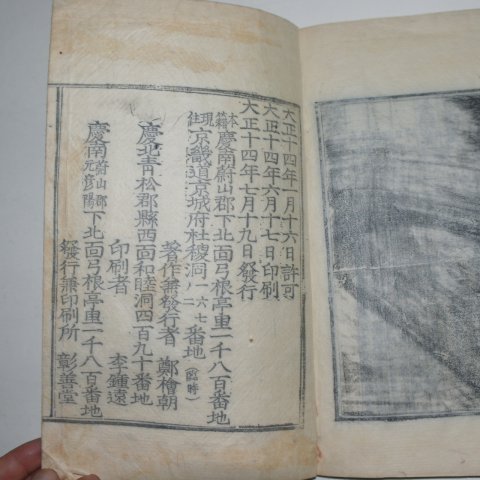 大正十四年一月十六日許可
大正十四年六月十七日印刷
大正十四年七月十九日發行
本籍慶南蔚山郡下北面弓根亭里一千八百番地
現住京畿道京城府社稷洞一六七ノ二番地(臨時)
著作兼發行者 鄭檜朝
慶北青松郡縣西面和睦洞四百九十番地
印刷者 李鍾遠
慶南蔚山郡元彦陽下北面弓根亭里一千八百番地
發行兼印刷所 彰善堂